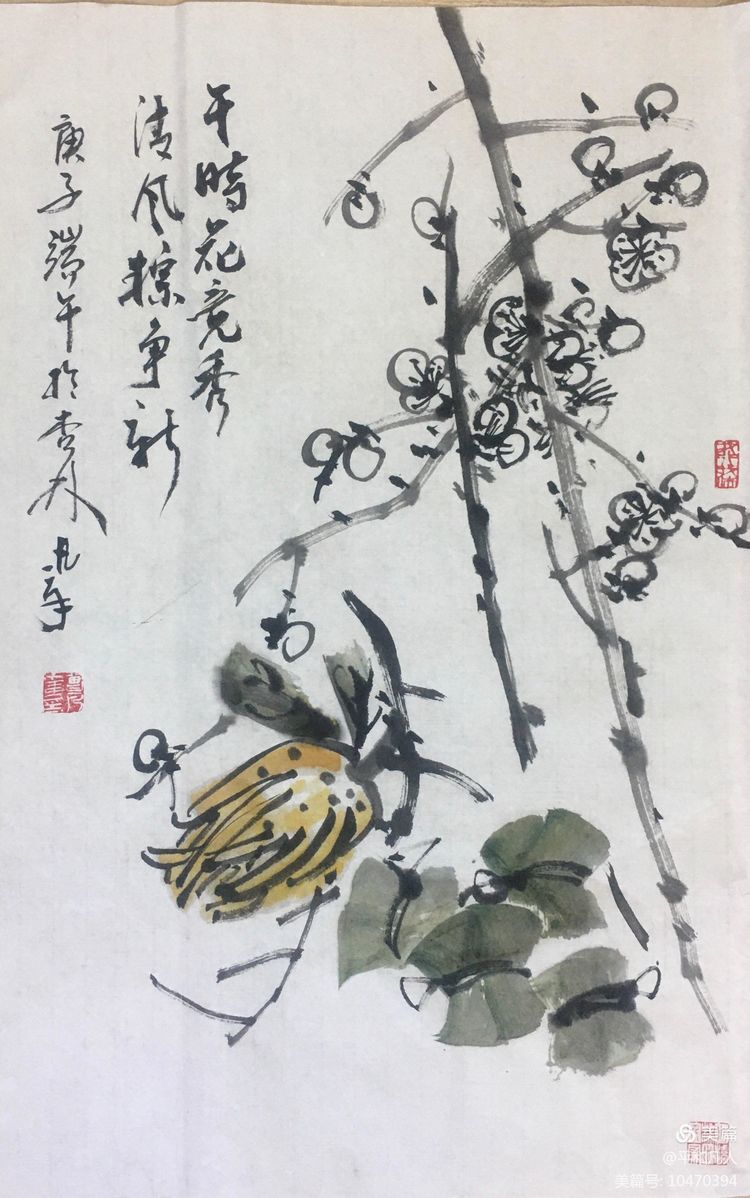 午時花竞秀
清风粽争新
庚子端午於杏林
美篇
@平和凡人
美篇号: 10470394